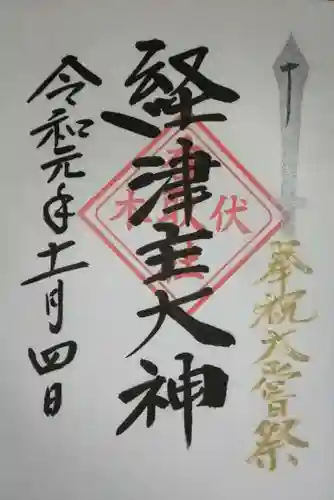 奉祝大嘗祭
経津主大神
令和元年十一月四日
伏
木
社